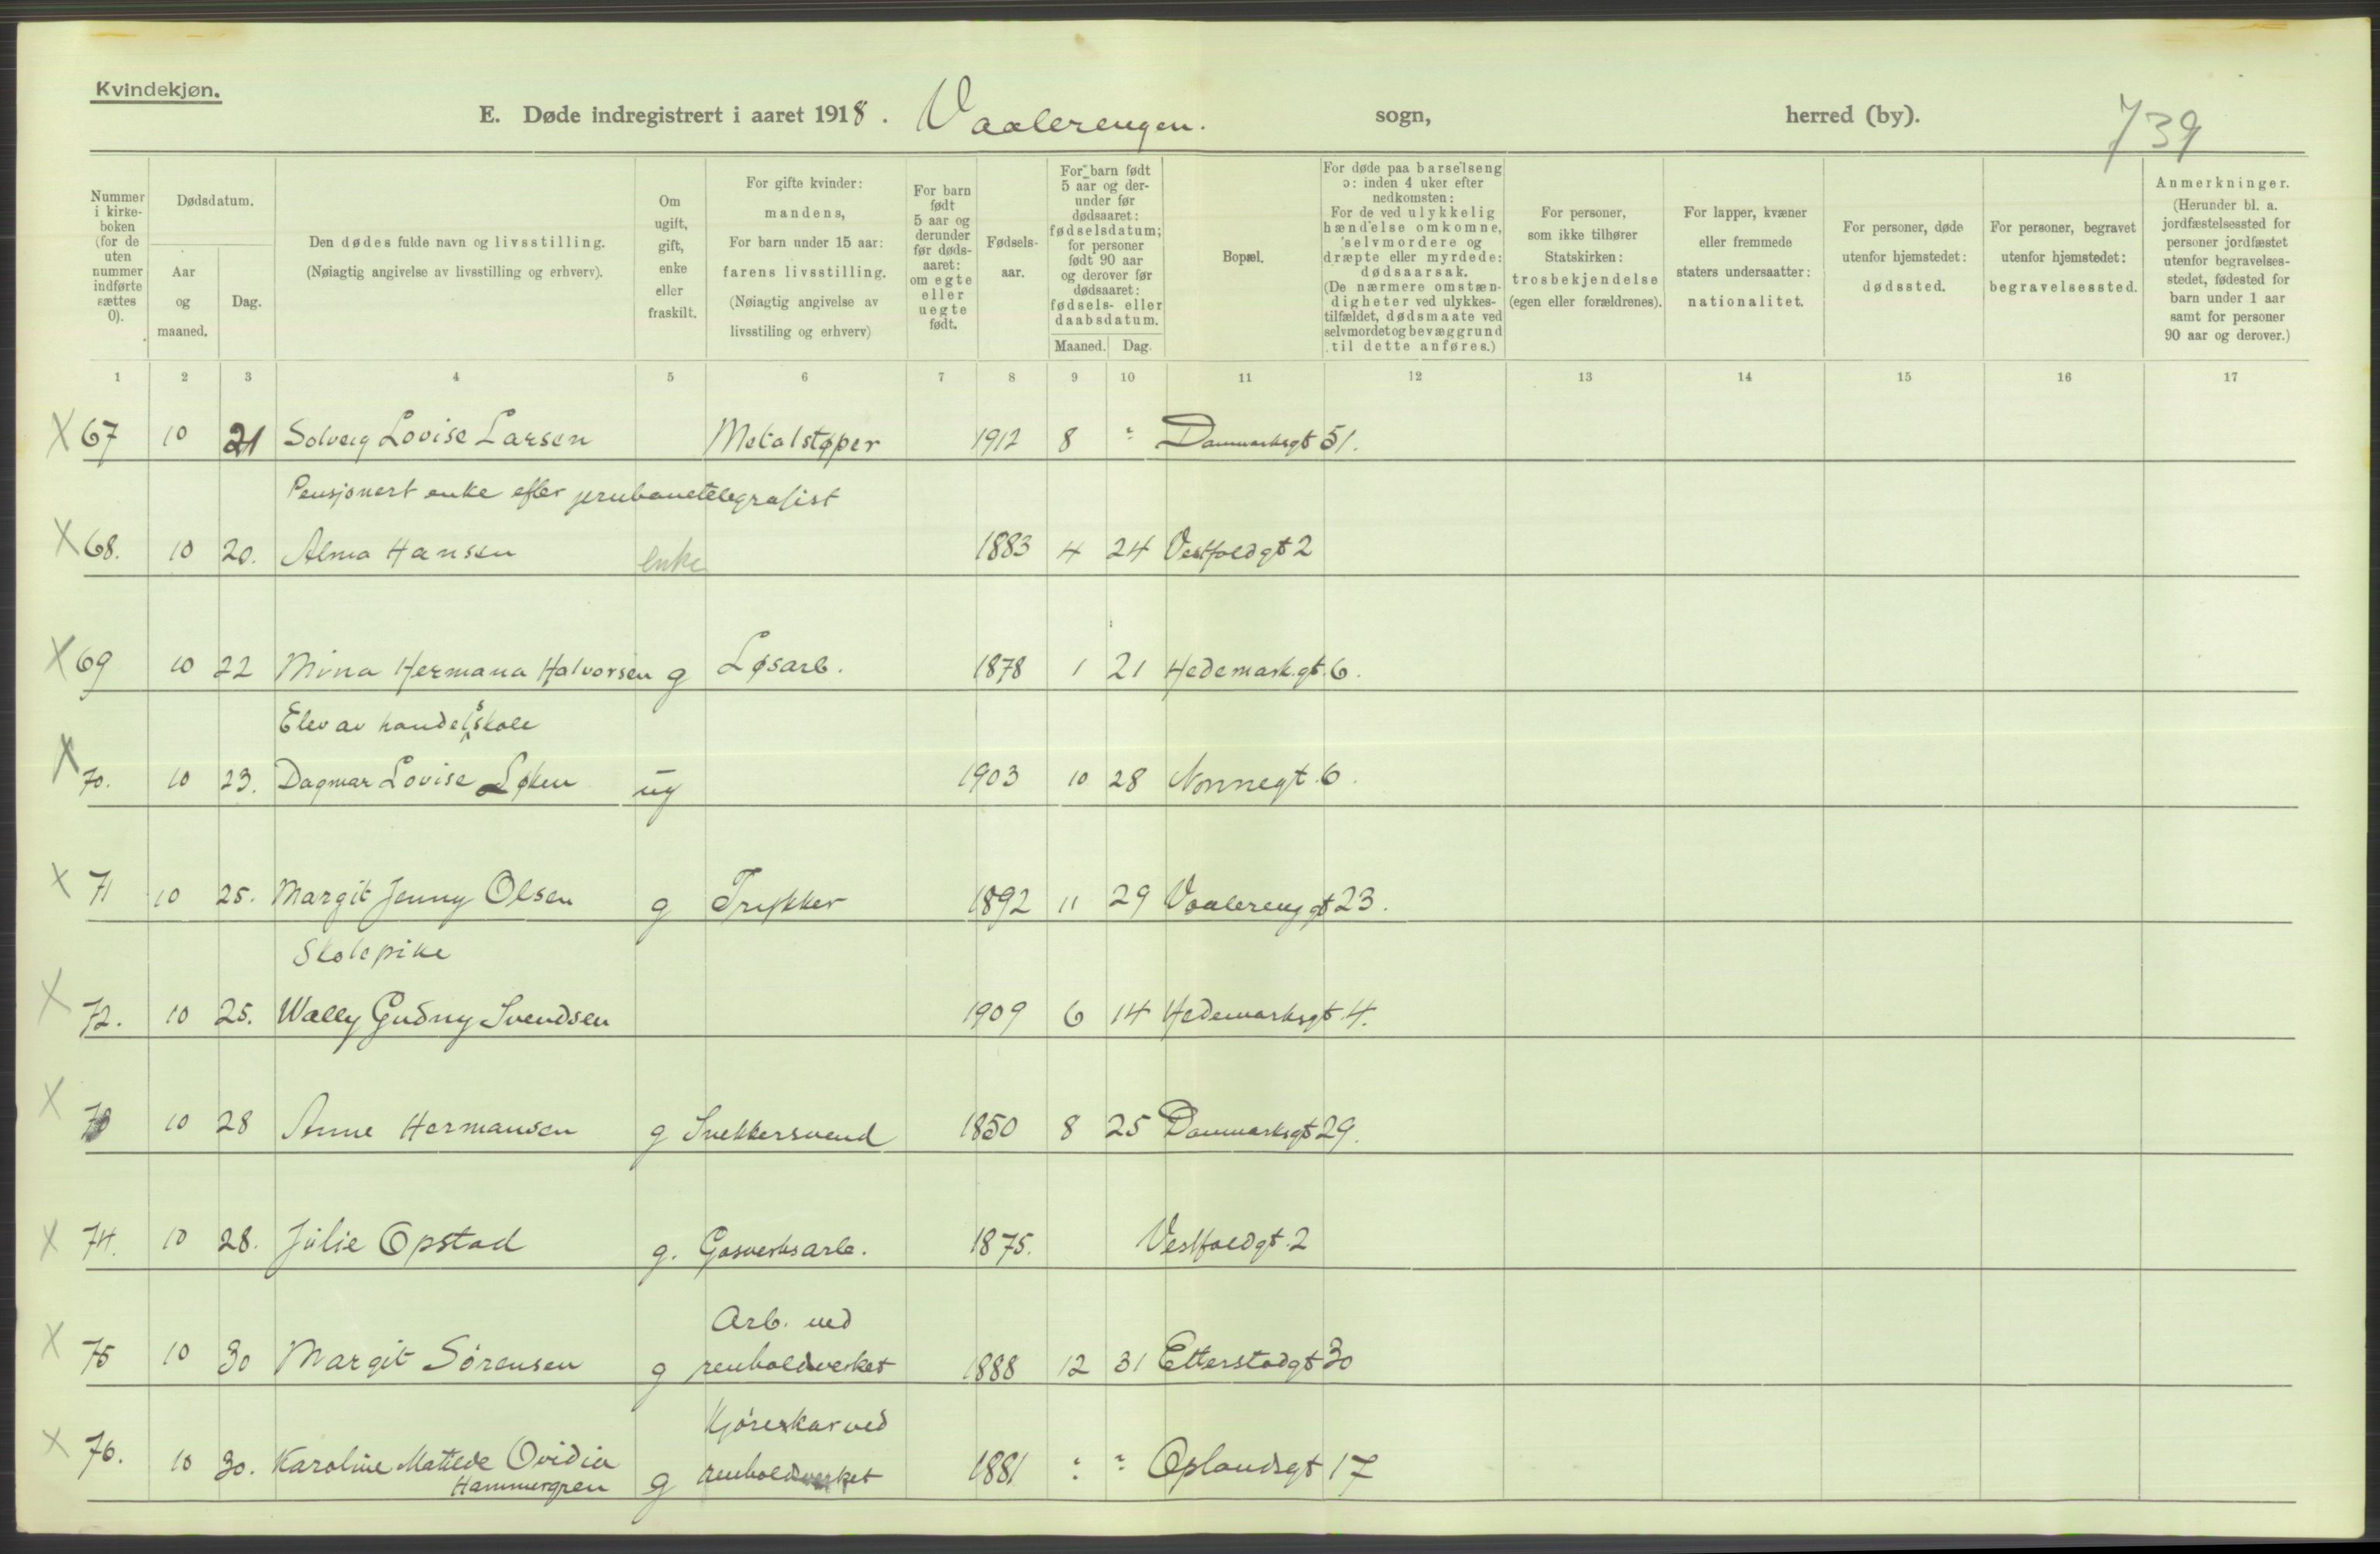 Kvindekjøn.
E. Døde indregistrert i aaret 1918. Vaalerengen. sogn, herred (by). 739
Nummer i kirke- boken (for de uten nummer indførte sættes 0).
Dødsdatum.
Aar og maaned.
Dag.
Den dødes fulde navn og livsstilling.
(Nøiagtig angivelse av livsstilling og erhverv).
Om ugift, gift, enke eller fraskilt.
For gifte kvinder: mandens, For barn under 15 aar: farens livsstilling. (Nøiagtig angivelse av livsstiling og erhverv)
For barn født 5 aar og derunder før døds- aaret: om egte eller uegte født.
Fødsels- aar.
For barn født 5 aar og der- under før dødsaaret: fødselsdatum; for personer født 90 aar og derover før dødsaaret: fødsels- eller daabsdatum.
Maaned. Dag.
Bopæl.
For døde paa barselseng ɔ: inden 4 uker efter nedkomsten: For de ved ulykkelig hændelse omkomne, selvmordere og dræpte eller myrdede: dødsaarsak. (De nærmere omstæn- digheter ved ulykkes- tilfældet, dødsmaate ved selvmordet og bevæggrund til dette anføres.)
For personer, som ikke tilhører Statskirken: trosbekjendelse (egen eller forældrenes).
For lapper, kvæner eller fremmede staters undersaatter: nationalitet.
For personer, døde utenfor hjemstedet: dødssted.
For personer, begravet utenfor hjemstedet: begravelsessted.
Anmerkninger. (Herunder bl. a. jordfæstelsessted for personer jordfæstet utenfor begravelses- stedet, fødested for barn under 1 aar samt for personer 90 aar og derover.)
1 2 3 4 5 6 7 8 9 10 11 12 13 14 15 16 17
X 67 10 21 Solveig Lovise Larsen Metalstøper 1912 8 " Danmarksgt 51.
Pensjonert enke efter jernbanetelegrafist
X 68. 10 20. Alma Hansen enke 1883 4 24 Vestfoldgt 2
X 69 10 22 Mina Hermana Halvorsen g Løsarb. 1878 1 21 Hedemark.gt. 6.
Elev av handelsskole
X 70. 10 23. Dagmar Lovise Løken ug 1903 10 28 Nonnegt. 6.
X 71 10 25. Margit Jenny Olsen g Trykker 1892 11 29 Vaalereng gt 23.
Skolepike
X 72. 10 25. Wally Gudny Svendsen 1909 6 14 Hedemarksgt. 4.
X 73 10 28 Anne Hermansen g Snekkersvend 1850 8 25 Danmarksgt 29.
X 74. 10 28. Julie Opstad g. Gasverksarb. 1875. Vestfoldgt. 2
Arb. ved
X 75 10 30 Margit Sörensen g renholdverket 1888 12 31 Etterstadgt 30
Kjörerkar ved
X 76. 10 30. Karoline Matilde Ovidia g renholdsverket 1881 " " Oplandsgt 17
Hammergren